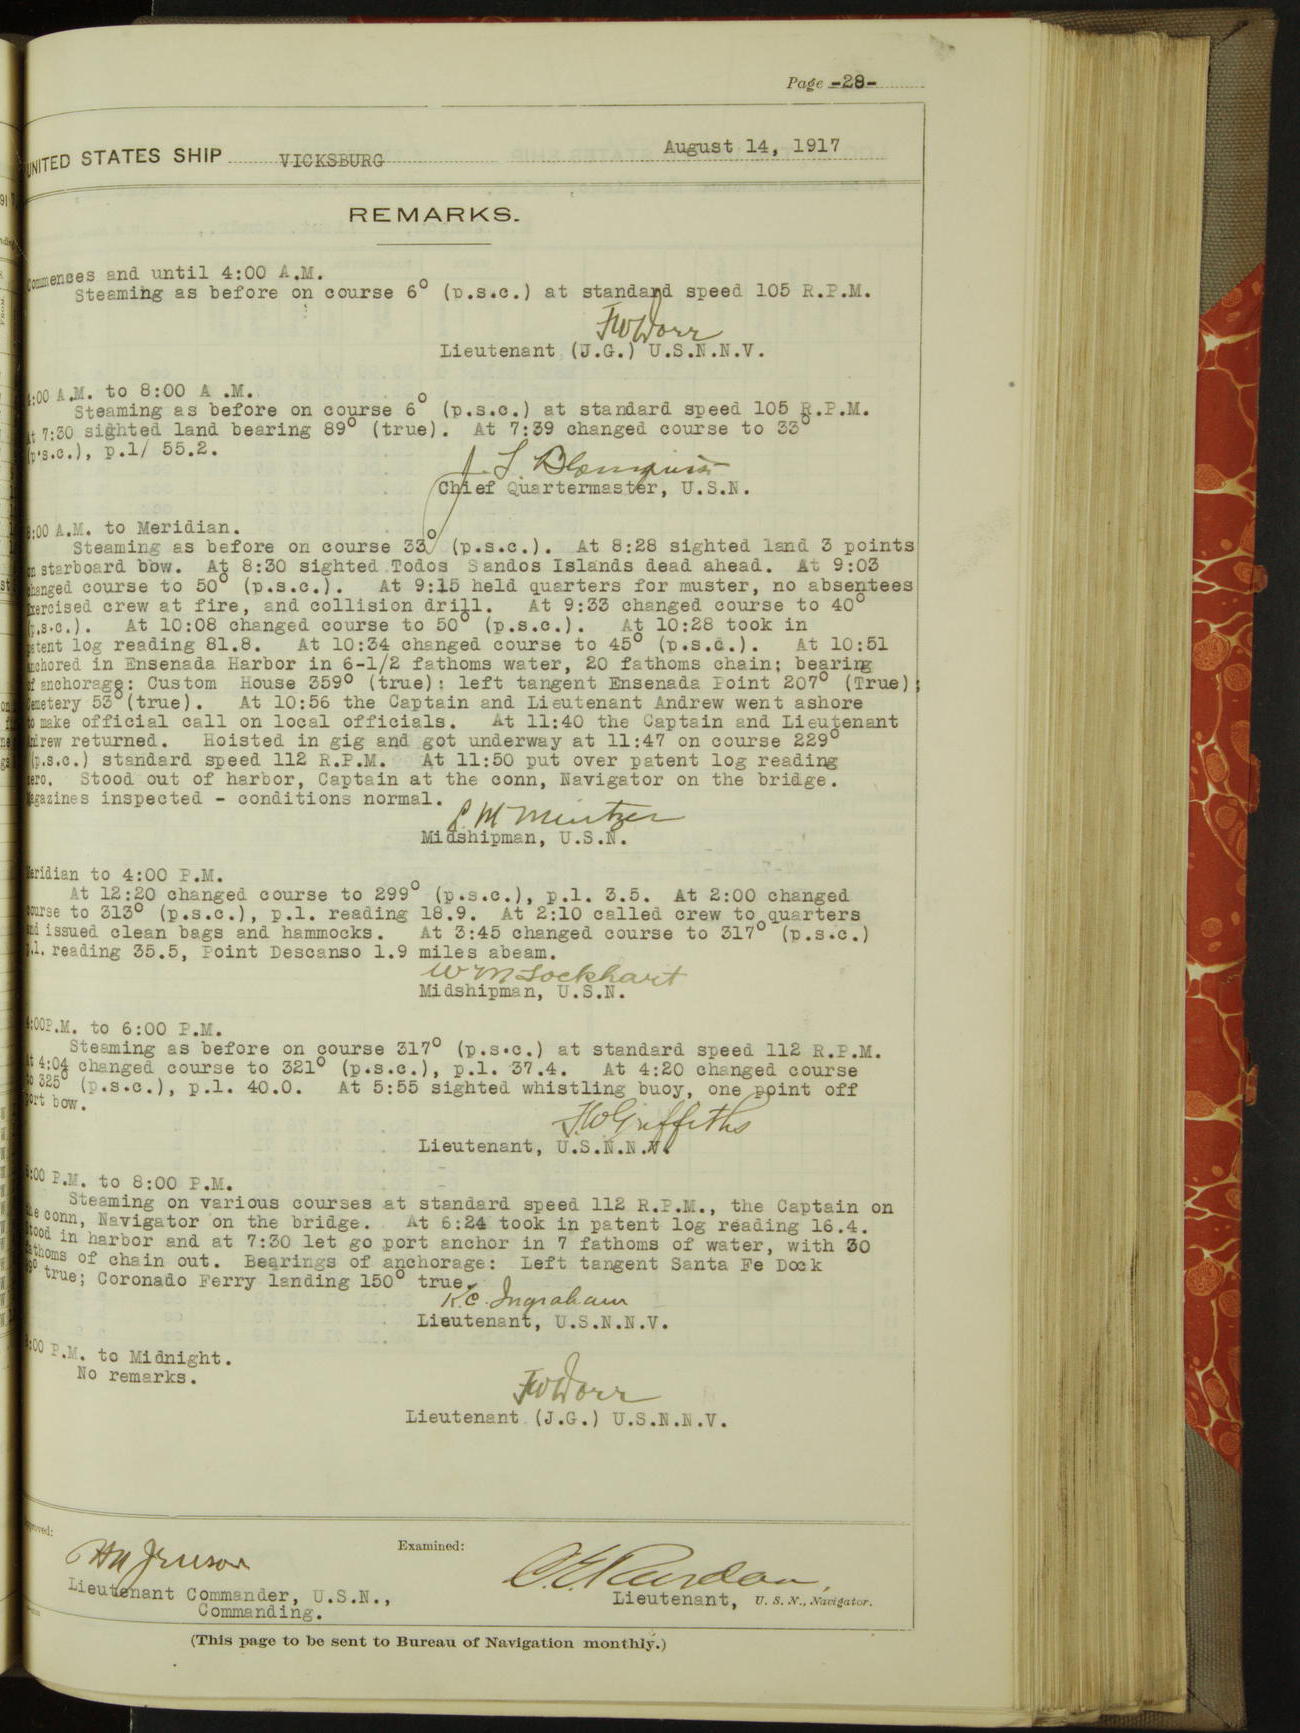 Page -28-
UNITED STATES SHIP VICKSBURG August 14, 1917
REMARKS.
Commences and until 4:00 A.M.
Steaming as before on course 6° (p.s.c.) at standard speed 105 R.P.M.
FWDorr
Lieutenant (J.G.) U.S.N.N.V.
4:00 A.M. to 8:00 A .M.
Steaming as before on course 6° (p.s.c.) at standard speed 105 R.P.M.
At 7:30 sighted land bearing 89° (true). At 7:39 changed course to 33°
(p.s.c.), p.l/ 55.2.
J. L. Blomquist
Chief Quartermaster, U.S.N.
8:00 A.M. to Meridian.
Steaming as before on course 33° (p.s.c.). At 8:28 sighted land 3 points
on starboard bow. At 8:30 sighted Todos Sandos Islands dead ahead. At 9:03
changed course to 50° (p.s.c.). At 9:15 held quarters for muster, no absentees
Exercised crew at fire, and collision drill. At 9:33 changed course to 40°
(p.s.c.). At 10:08 changed course to 50° (p.s.c.). At 10:28 took in
patent log reading 81.8. At 10:34 changed course to 45° (p.s.c.). At 10:51
anchored in Ensenada Harbor in 6-1/2 fathoms water, 20 fathoms chain; bearing
of anchorage: Custom House 359° (true): left tangent Ensenada Point 207° (True);
Cemetery 53°(true). At 10:56 the Captain and Lieutenant Andrew went ashore
to make official call on local officials. At 11:40 the Captain and Lieutenant
Andrew returned. Hoisted in gig and got underway at 11:47 on course 229°
(p.s.c.) standard speed 112 R.P.M. At 11:50 put over patent log reading
zero. Stood out of harbor, Captain at the conn, Navigator on the bridge.
Magazines inspected - conditions normal.
M Mintzer
Midshipman, U.S.N.
Meridian to 4:00 P.M.
At 12:20 changed course to 299° (p.s.c.), p.l. 3.5. At 2:00 changed
course to 313° (p.s.c.), p.l. reading 18.9. At 2:10 called crew to quarters
and issued clean bags and hammocks. At 3:45 changed course to 317° (p.s.c.)
p.l. reading 35.5, Point Descanso 1.9 miles abeam.
W M Lockhart
Midshipman, U.S.N.
4:00P.M. to 6:00 P.M.
Steaming as before on course 317° (p.s.c.) at standard speed 112 R.P.M.
At 4:04 changed course to 321° (p.s.c.), p.l. 37.4. At 4:20 changed course
to 325° (p.s.c.), p.l. 40.0. At 5:55 sighted whistling buoy, one point off
port bow.
FWGriffiths
Lieutenant, U.S.N.N.V.
6:00 P.M. to 8:00 P.M.
Steaming on various courses at standard speed 112 R.P.M., the Captain on
the conn, Navigator on the bridge. At 6:24 took in patent log reading 16.4.
Stood in harbor and at 7:30 let go port anchor in 7 fathoms of water, with 30
fathoms of chain out. Bearings of anchorage: Left tangent Santa Fe Dock
true; Coronado Ferry landing 150° true.
K.C. Ingraham
Lieutenant, U.S.N.N.V.
8:00 P.M. to Midnight.
No remarks.
FWDorr
Lieutenant (J.G.) U.S.N.N.V.
Approved:
Examined:
Lieutenant Commander, U.S.N.,
Commanding.
Lieutenant, U. S. N., Navigator.
(This page to be sent to Bureau of Navigation monthly.)